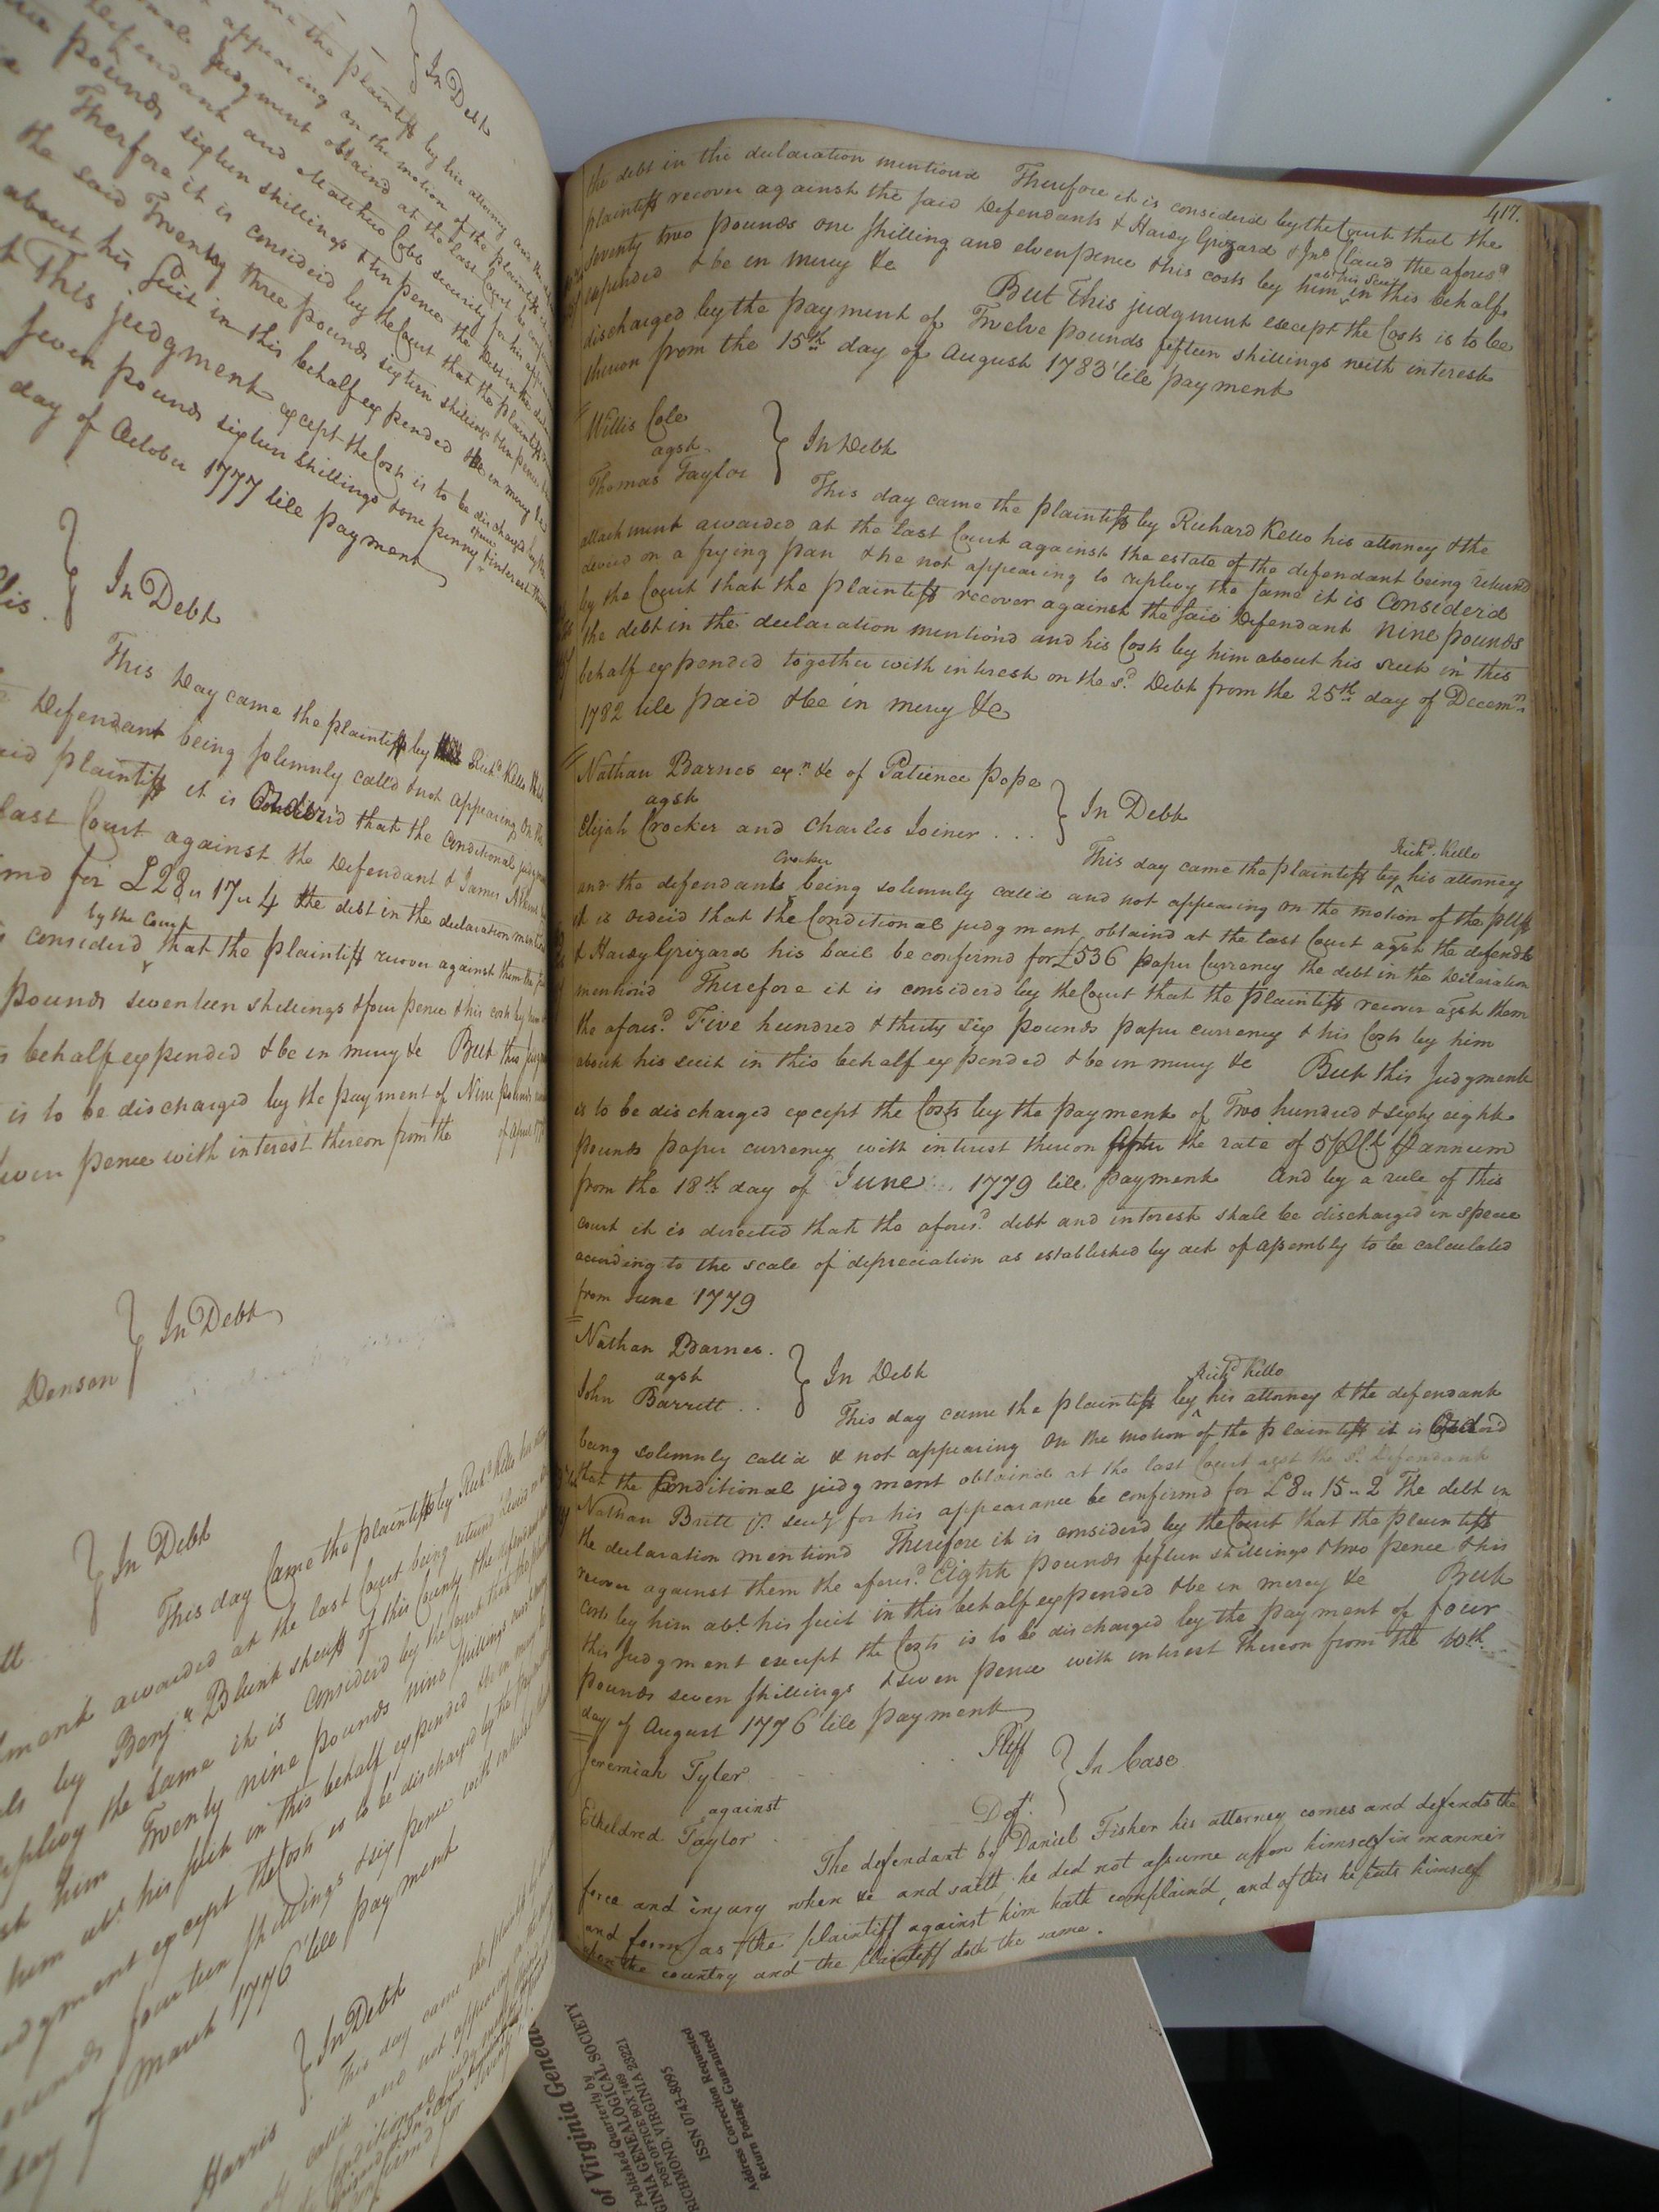 In Debt
the plaintiff by his attorney and the
appearing on the motion of the plaintiff it is
Judgment obtaind at the last Court be
defendant and Matthew Cobb security for his
pounds sixteen shillings & ten pence the Debt in the
Therfore it is considerd by the Court that the plaintiff
the said Twenty three pounds sixteen shillings & ten pence
about his Suit in this behalf expended & be in mercy &c
This judgment except the Costs is to be discharged by the
seven pounds sixteen shillings & one penny specie & interest
day of October 1777 till payment
In Debt
This Day came the plaintiff by Richd Kello
Defendant being solemnly called & not appearing On the
said plaintiff it is Orderd that the Conditional judgment
last Court against the Defendant & James
for £28 " 17 " 4 the debt in the declaration
by the Court
considerd that the plaintiff recover against them the
pounds seventeen shillings & four pence & his costs by him
behalf expended & be in mercy &c But this
is to be discharged by the payment of Nine pounds
pence with interest thereon from the of April
Denson
In Debt
In Debt
This day Came the plaintiff by Richd Kello his
awarded at the last Court being returnd levied
by Benja Blunt sheriff of this County & the defendant
replevy the same it is Considerd by the Court that the
him Twenty nine pounds nine shillings
him abt his suit in this behalf expended & be in mercy &c
judgment except the Costs is to be discharged by the payment
pounds fourteen shillings & six pence with interest
day of March 1776 till payment
Harris
In Debt
This day came the plaintiff by
calld and not appearing
Conditional judgment
417.
the debt in the declaration mentiond Therefore it is considerd by the Court that the
plaintiff recover against the said Defendants & Hardy Grizard & Jno Claud the aforesd
seventy two pounds one shilling and elvenpence & his costs by him
abt his Suit
in this behalf
expended & be in mercy &c But This judgment except the Costs is to be
discharged by the payment of Twelve pounds fifteen shillings with interest
thereon from the 15th day of August 1783 till payment
Willis Cole
agst.
In Debt
Thomas Taylor
This day came the plaintiff by Richard Kello his attorney & the
attachment awarded at the last Court against the estate of the defendant being returnd
levied on a frying pan & he not appearing to replevy the same it is Considerd
by the Court that the plaintiff recover against the said Defendant Nine pounds
the debt in the declaration mention'd and his Costs by him about his suit in this
behalf expended together with interest on the sd Debt from the 25th day of Decemr
1782 till paid & be in mercy &c
Nathan Barnes exr &c of Patience Pope
agst
In Debt
Elijah Crocker and Charles Joiner . . .
Richd. Kello
This day came the plaintiff by his attorney
Crocker
and the defendants being solemnly calld and not appearing on the motion of the pltff
it is orderd that the Conditional judgment obtaind at the last Court agst the defendt
& Hardy Grizard his bail be confirmd for £536 paper Currency the debt in the Declaration
mention'd Therefore it is considerd by the Court that the plaintiff recover agst them
the aforesd. Five hundred & thirty six pounds paper currency & his Costs by him
about his suit in this behalf expended & be in mercy &c But this Judgment
is to be discharged except the Costs by the payment of Two hundred & sixty eight
pounds paper currency with interest thereon after the rate of 5 ₱Ct ₱ annum
from the 18th day of June 1779 till payment And by a rule of this
court it is directed that the aforesd debt and interest shall be discharged in specie
according to the scale of depreciation as established by act of assembly to be calculated
from June 1779
Nathan Barnes.
agst
In Debt
John Barrett . .
Richd Kello
This day came the plaintiff by his attorney & the defendant
being solemnly calld & not appearing On the motion of the plaintiff it is Orderd
that the Conditional judgment obtaind at the last Court agst the sd Defendant
Nathan Britt jr. secuty for his appearance be confirmd for £8 " 15 " 2 The debt in
the declaration mentiond Therefore it is considerd by the Court that the plaintiff
recover against them the aforesd. Eight pounds fifteen shillings & two pence & his
costs by him abt. his suit in this behalf expended & be in mercy &c But
this Judgment except the Costs is to be discharged by the payment of four
pounds seven shillings & seven pence with interest thereon from the 10th
day of August 1776 till payment
Jeremiah Tyler Pltff
against
In Case
Etheldred Taylor Deft.
The defendant by Daniel Fisher his attorney comes and defends the
force and injury when &c and saith he did not assume upon himself in manner
and form as the plaintiff against him hath complain'd, and of this he puts himself
upon the country and the plaintiff doth the same.
of Virginia Geneal
Published Quarterly by
GINIA GENEALOGICAL SOCIETY
POST OFFICE BOX 7469
RICHMOND, VIRGINIA 23221
ISSN 0743-8095
Address Correction Requested
Return Postage Guaranteed